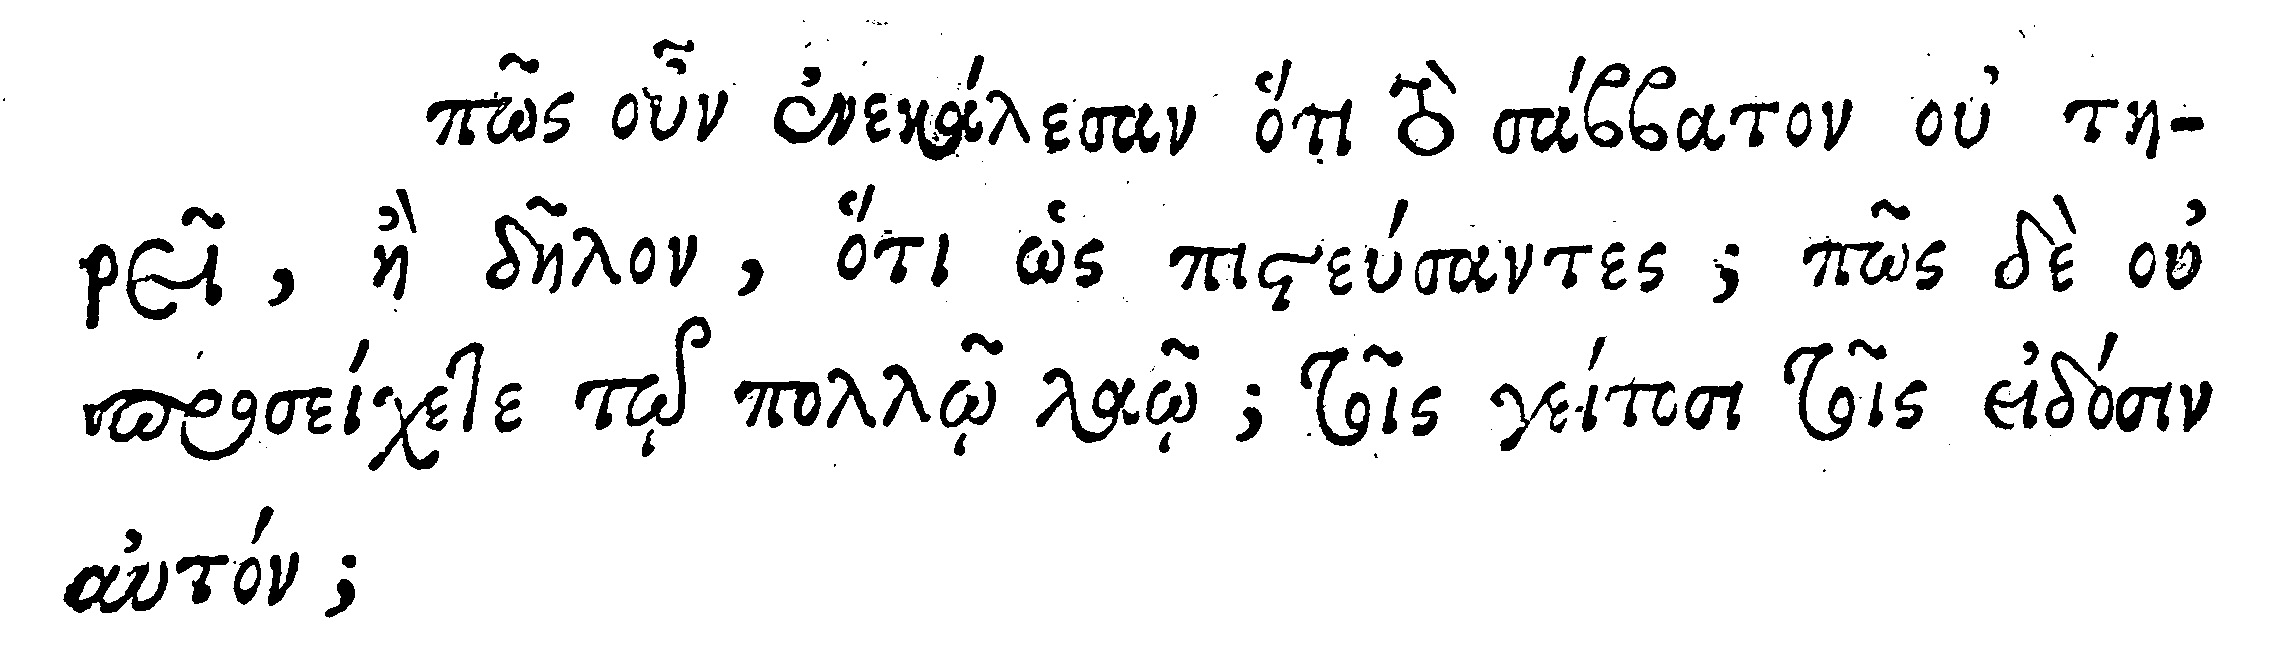 πῶς οὖν ἐνεκάλεσαν ὅτι τὸ σάββατον οὐ τη-
ρεῖ, ἢ δῆλον, ὅτι ὡς πιστεύσαντες; πῶς δὲ οὐ
προσείχετε τῷ πολλῷ λαῷ; τοῖς γείτοσι τοῖς εἰδόσιν
αὐτόν;